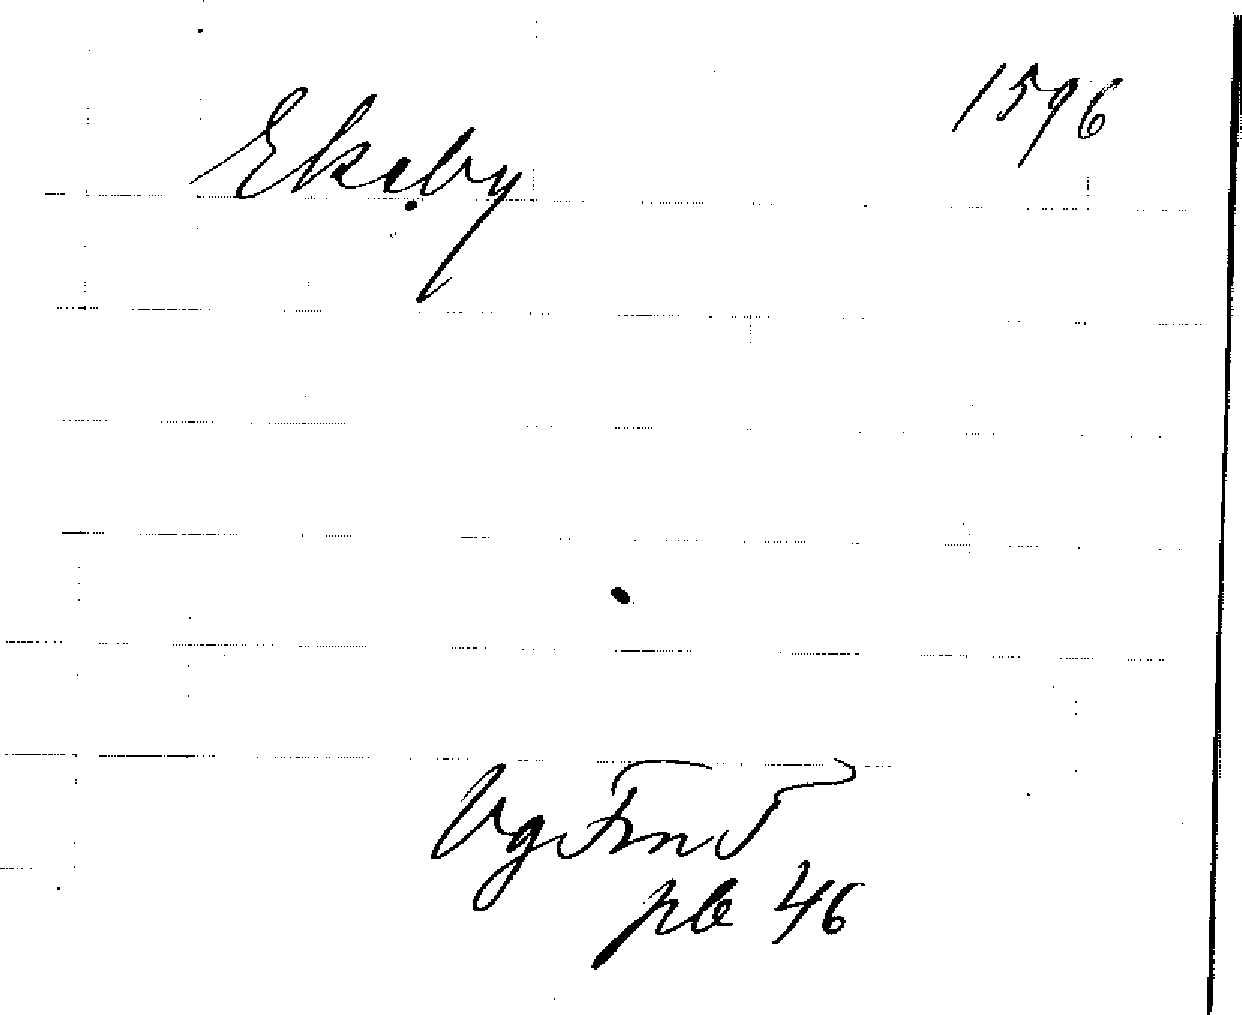 Ekeby 1596
Vg Fmt
pb 46